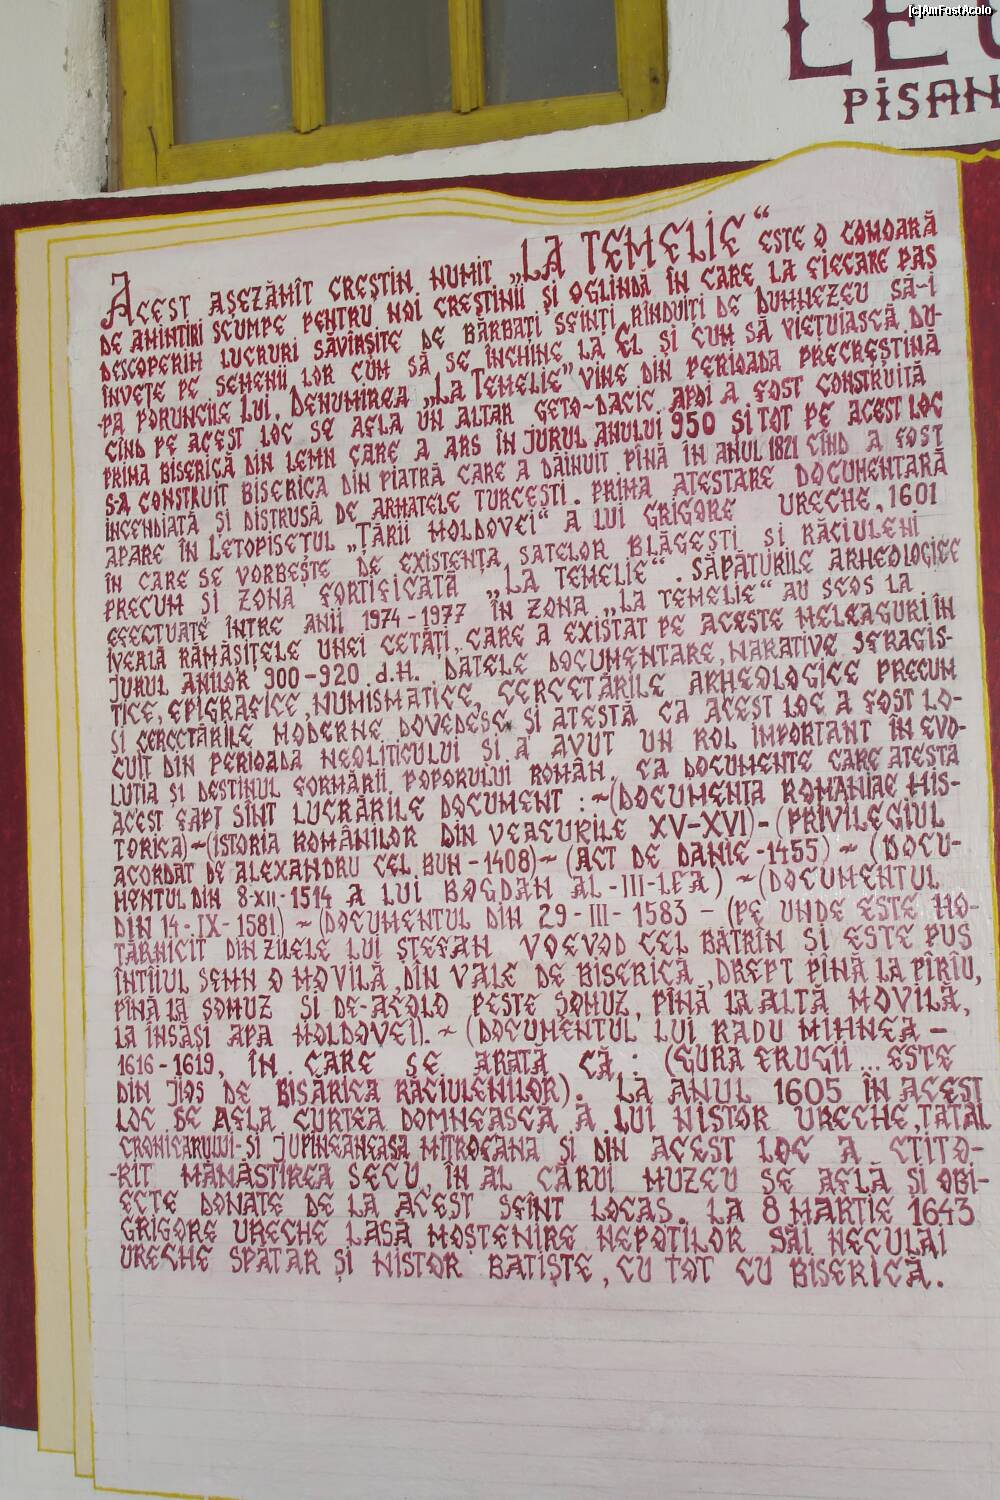 [c]AmFostAcolo
LE
PISAN
ACEST AȘEZĂMÎT CREȘTIN NUMIT „LA TEMELIE“ ESTE O COMOARĂ
DE AMINTIRI SCUMPE PENTRU NOI CREȘTINII ȘI OGLINDĂ ÎN CARE LA FIECARE PAS
DESCOPERIM LUCRURI SĂVÎRȘITE DE BĂRBAȚI SFINȚI RÎNDUIȚI DE DUMNEZEU SĂ-I
ÎNVEȚE PE SEMENII LOR CUM SĂ SE ÎNCHINE LA EL ȘI CUM SĂ VIEȚUIASCĂ DU-
PĂ PORUNCILE LUI. DENUMIREA „LA TEMELIE“ VINE DIN PERIOADA PRECREȘTINĂ
CÎND PE ACEST LOC SE AFLA UN ALTAR GETO-DACIC. APOI A FOST CONSTRUITĂ
PRIMA BISERICĂ DIN LEMN CARE A ARS ÎN JURUL ANULUI 950 ȘI TOT PE ACEST LOC
S-A CONSTRUIT BISERICA DIN PIATRĂ CARE A DĂINUIT PÎNĂ ÎN ANUL 1821 CÎND A FOST
INCENDIATĂ ȘI DISTRUSĂ DE ARMATELE TURCEȘTI. PRIMA ATESTARE DOCUMENTARĂ
APARE ÎN LETOPISEȚUL „ȚĂRII MOLDOVEI“ A LUI GRIGORE URECHE, 1601
ÎN CARE SE VORBEȘTE DE EXISTENȚA SATELOR BLĂGEȘTI ȘI RĂCIULENI
PRECUM ȘI ZONA FORTIFICATĂ „LA TEMELIE“. SĂPĂTURILE ARHEOLOGICE
EFECTUATE ÎNTRE ANII 1974-1977 ÎN ZONA „LA TEMELIE“ AU SCOS LA
IVEALĂ RĂMĂȘIȚELE UNEI CETĂȚI, CARE A EXISTAT PE ACESTE MELEAGURI ÎN
JURUL ANILOR 900-920 d.H. DATELE DOCUMENTARE, NARATIVE SFRAGIS-
TICE, EPIGRAFICE, NUMISMATICE, CERCETĂRILE ARHEOLOGICE PRECUM
ȘI CERCETĂRILE MODERNE DOVEDESC ȘI ATESTĂ CĂ ACEST LOC A FOST LO-
CUIT DIN PERIOADA NEOLITICULUI ȘI A AVUT UN ROL IMPORTANT ÎN EVO-
LUȚIA ȘI DESTINUL FORMĂRII POPORULUI ROMÂN. CA DOCUMENTE CARE ATESTĂ
ACEST FAPT SÎNT LUCRĂRILE DOCUMENT : ~(DOCUMENTA ROMANIAE HIS-
TORICA)~(ISTORIA ROMÂNILOR DIN VEACURILE XV-XVI)-(PRIVILEGIUL
ACORDAT DE ALEXANDRU CEL BUN-1408)~ (ACT DE DANIE-1455) ~ (DOCU-
MENTUL DIN 8-XII-1514 A LUI BOGDAN AL-III-LEA) ~(DOCUMENTUL
DIN 14-IX-1581) ~(DOCUMENTUL DIN 29-III-1583 - (PE UNDE ESTE HO-
TĂRNICIT DIN ZILELE LUI ȘTEFAN VOEVOD CEL BĂTRÎN ȘI ESTE PUS
ÎNTÎIUL SEMN O MOVILĂ, DIN VALE DE BISERICĂ, DREPT PÎNĂ LA PÎRÎU,
PÎNĂ LA ȘOMUZ ȘI DE-ACOLO PESTE ȘOMUZ, PÎNĂ LA ALTĂ MOVILĂ,
LA ÎNSĂȘI APA MOLDOVEI). ~ (DOCUMENTUL LUI RADU MIHNEA -
1616-1619, ÎN CARE SE ARATĂ CĂ : (GURA ERUGII... ESTE
DIN JIOS DE BISĂRICA RĂCIULENILOR). LA ANUL 1605 ÎN ACEST
LOC SE AFLA CURTEA DOMNEASCĂ A LUI NISTOR URECHE, TATĂL
CRONICARULUI-ȘI JUPÎNEANEASA MITROFANA ȘI DIN ACEST LOC A CTITO-
-RIT MĂNĂSTIREA SECU, ÎN AL CĂRUI MUZEU SE AFLĂ ȘI OBI-
ECTE DONATE DE LA ACEST SFÎNT LOCAȘ. LA 8 MARTIE 1643
GRIGORE URECHE LASĂ MOȘTENIRE NEPOȚILOR SĂI NECULAI
URECHE SPĂTAR ȘI NISTOR BATIȘTE, CU TOT CU BISERICĂ.